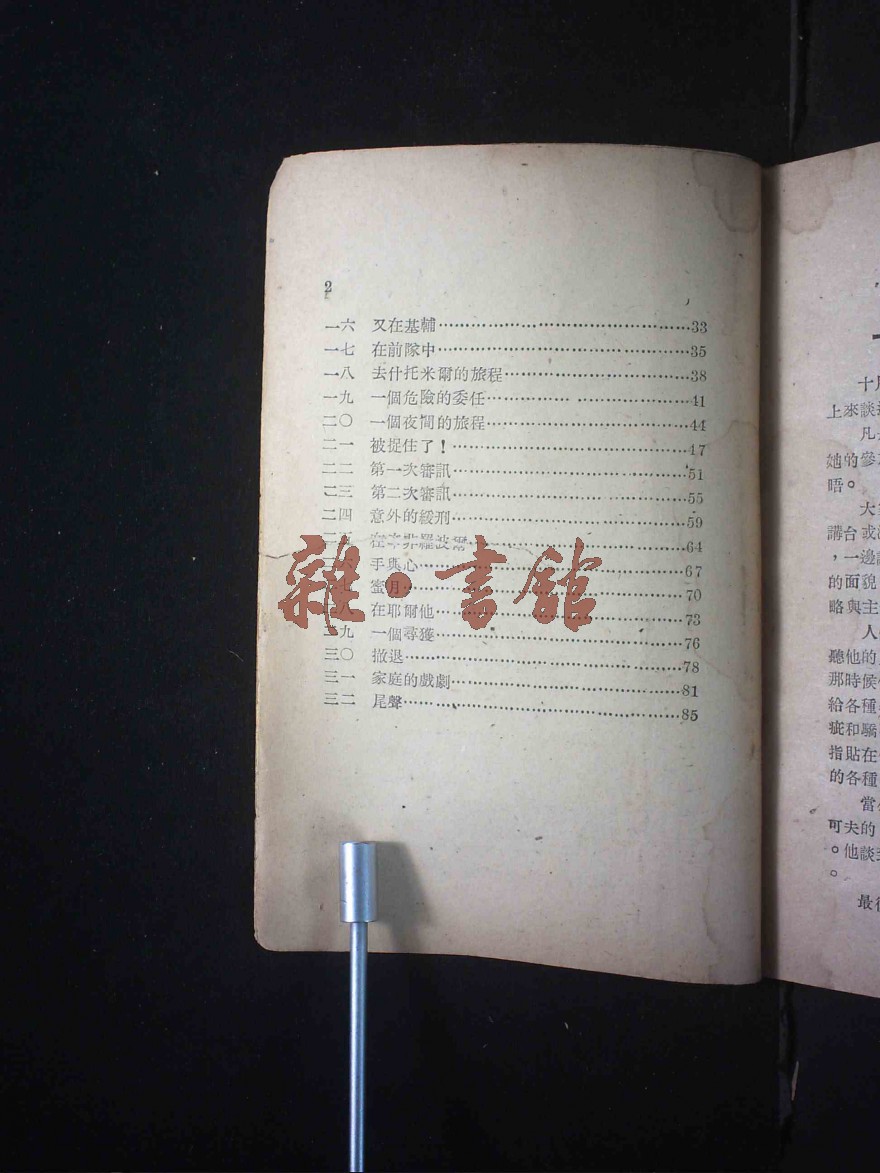 2
一六 又在基輔……33
一七 在前隊中……35
一八 去什托米爾的旅程……38
一九 一個危險的委任……41
二〇 一個夜間的旅程……44
二一 被捉住了！……47
二二 第一次審訊……51
二三 第二次審訊……55
二四 意外的緩刑……59
在辛非羅波爾……64
手與心……67
蜜月……70
八 在耶爾他……73
九 一個尋獲……76
三〇 撤退……78
三一 家庭的戲劇……81
三二 尾聲……85
雜·書館
十月
上來談
凡
她的參
晤。
大
講台或
，一邊
的面貌
略與主
人
聽他的
那時候
給各種
疵和驕
指貼在
的各種
當
可夫的
。他談
。
最後